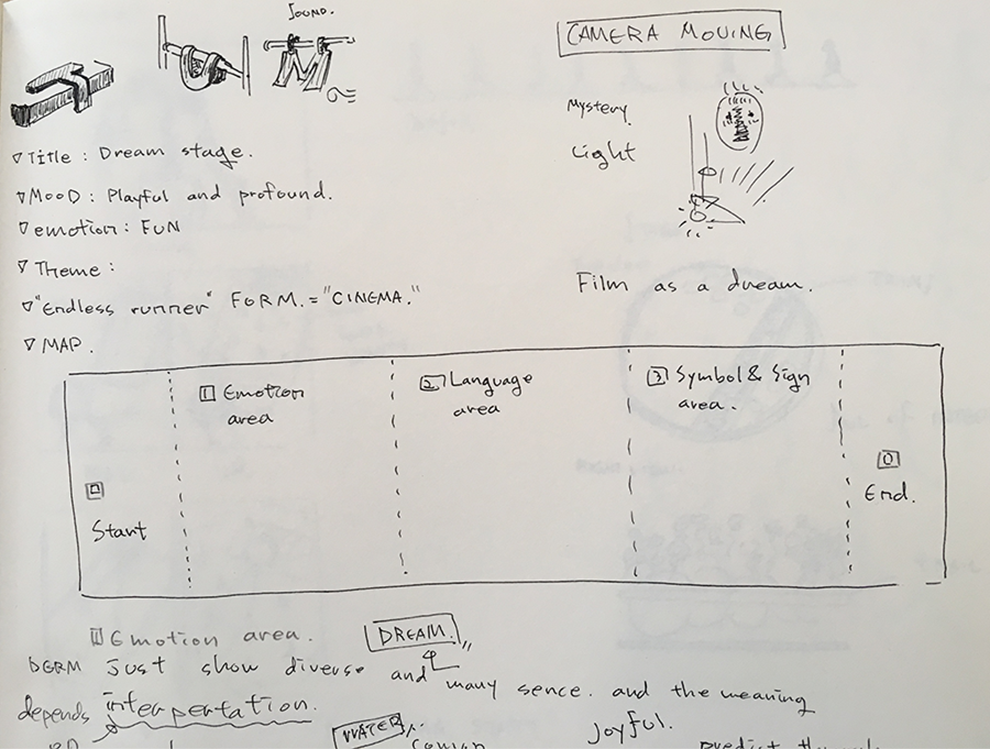 SOUND.
CAMERA MOVING
Mystery
Light
▽ Title : Dream stage.
▽ MOOD : Playful and profound.
▽ emotion : FUN
▽ Theme :
▽ "Endless runner" FORM. = "CINEMA."
Film as a dream.
▽ MAP.
1 Emotion area
2 Language area
3 Symbol & Sign area.
0 Start
0 End.
1 Emotion area. DREAM.
Just show diverse and many sence. and the meaning
depends interpertation.
WATER
Joyful.